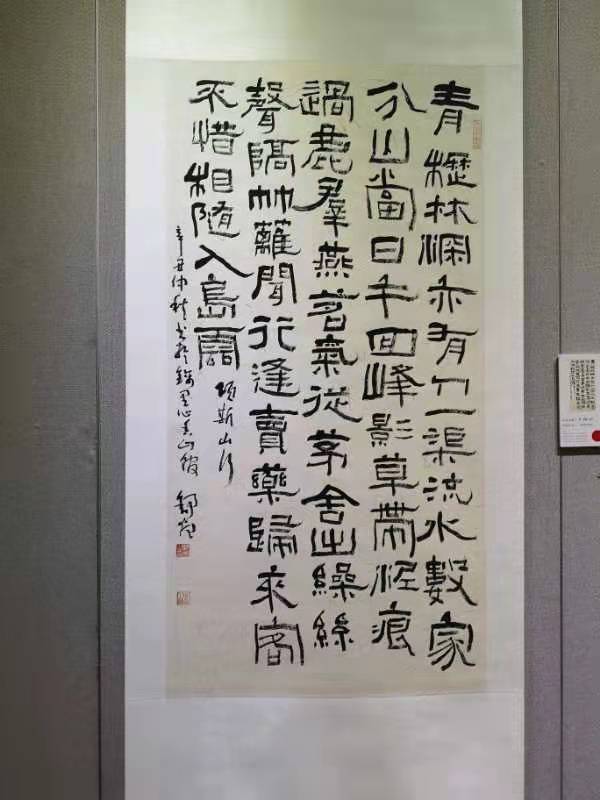 青櫪林深亦有人一渠流水數家
分山當日午回峰影草帶泥痕
過鹿羣蒸茗氣從茅舍出繅絲
聲隔竹籬聞行逢賣藥歸來客
不惜相隨入島雲
項斯山行
辛丑仲秋書於